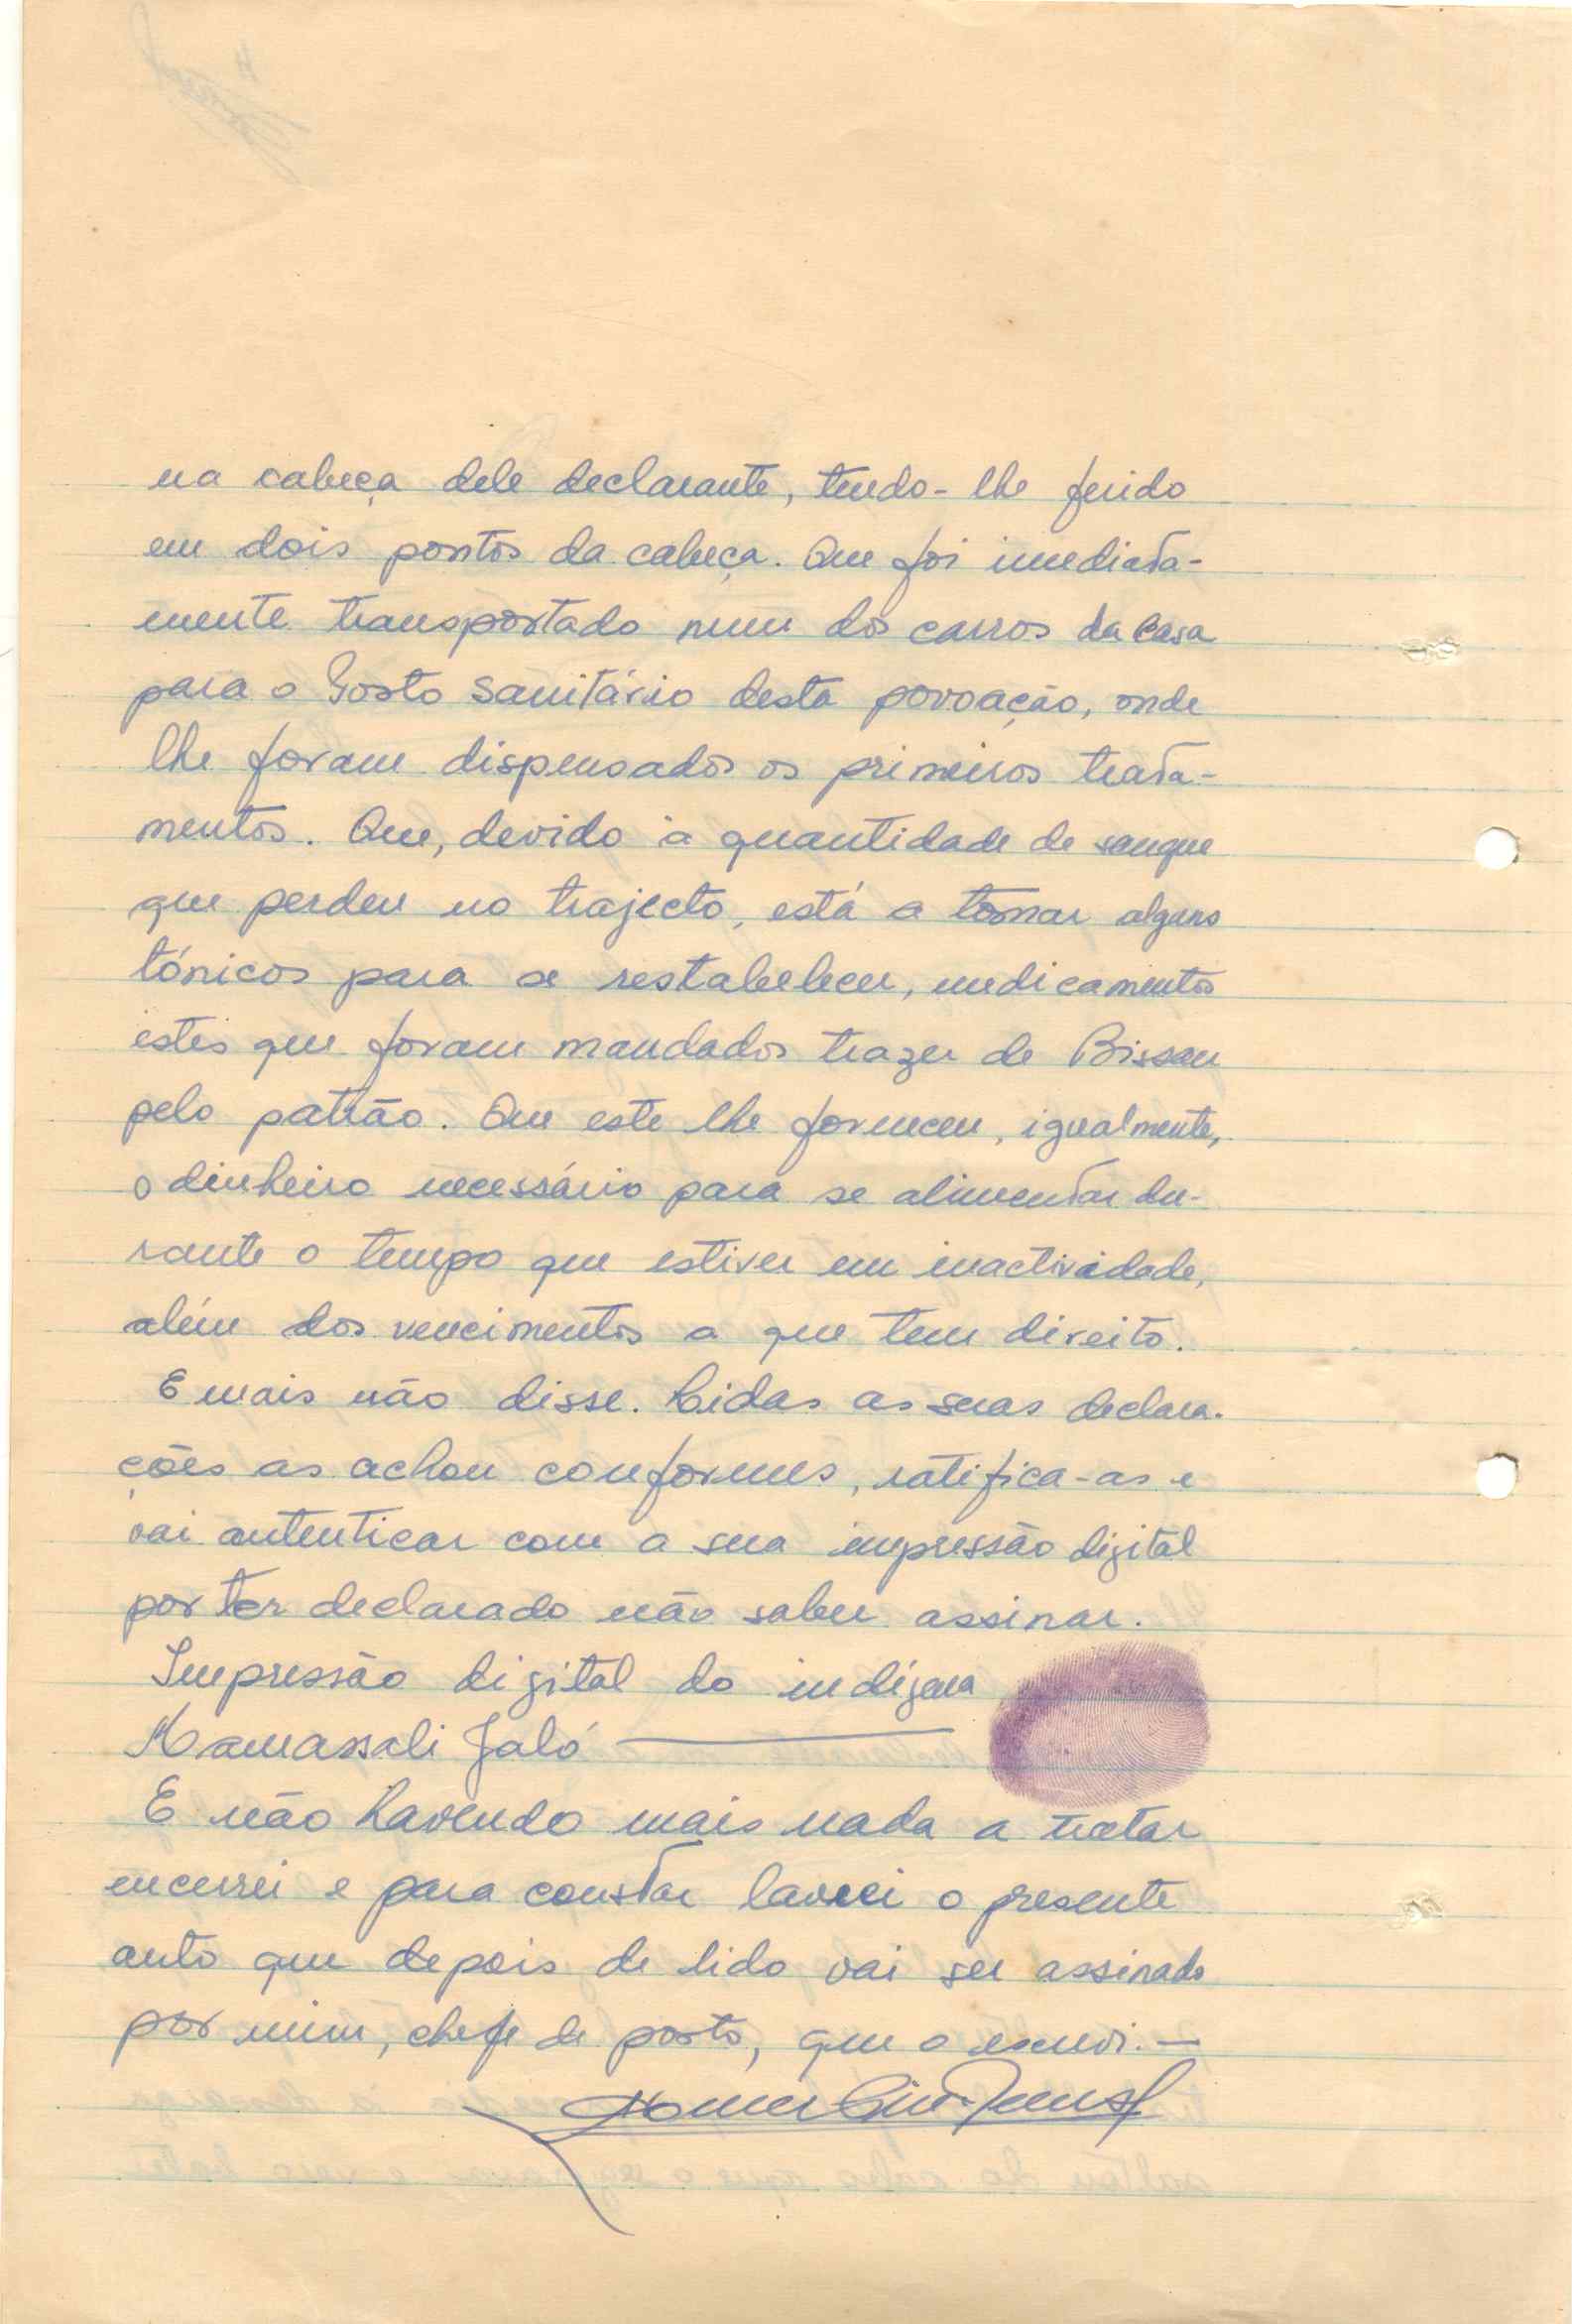 na cabeça dele declarante, tendo-lhe ferido
em dois pontos da cabeça. Que foi imediata-
mente transportado num dos carros da Casa
para o Posto Sanitário desta povoação, onde
lhe foram dispensados os primeiros trata-
mentos. Que, devido à quantidade de sangue
que perdeu no trajecto, está a tomar alguns
tónicos para se restabelecer, medicamentos
êstes que foram mandados trazer de Bissau
pelo patrão. Que este lhe forneceu, igualmente,
o dinheiro necessário para se alimentar du-
rante o tempo que estiver em inactividade,
além dos vencimentos a que tem direito.
E mais não disse. Lidas as suas declara-
ções as achou conformes, ratifica-as e
vai autenticar com a sua impressão digital
por ter declarado não saber assinar.
Impressão digital do indígena
Mamassali Jaló
E não havendo mais nada a tratar
encerrei e para constar lavrei o presente
auto que depois de lido vai ser assinado
por mim, chefe de posto, que o escrevi.—